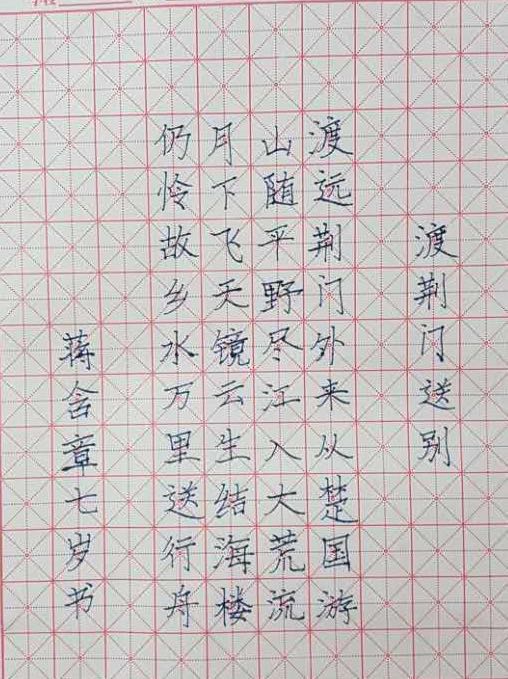 渡荆门送别
渡远荆门外来从楚国游
山随平野尽江入大荒流
月下飞天镜云生结海楼
仍怜故乡水万里送行舟
蒋含章七岁书